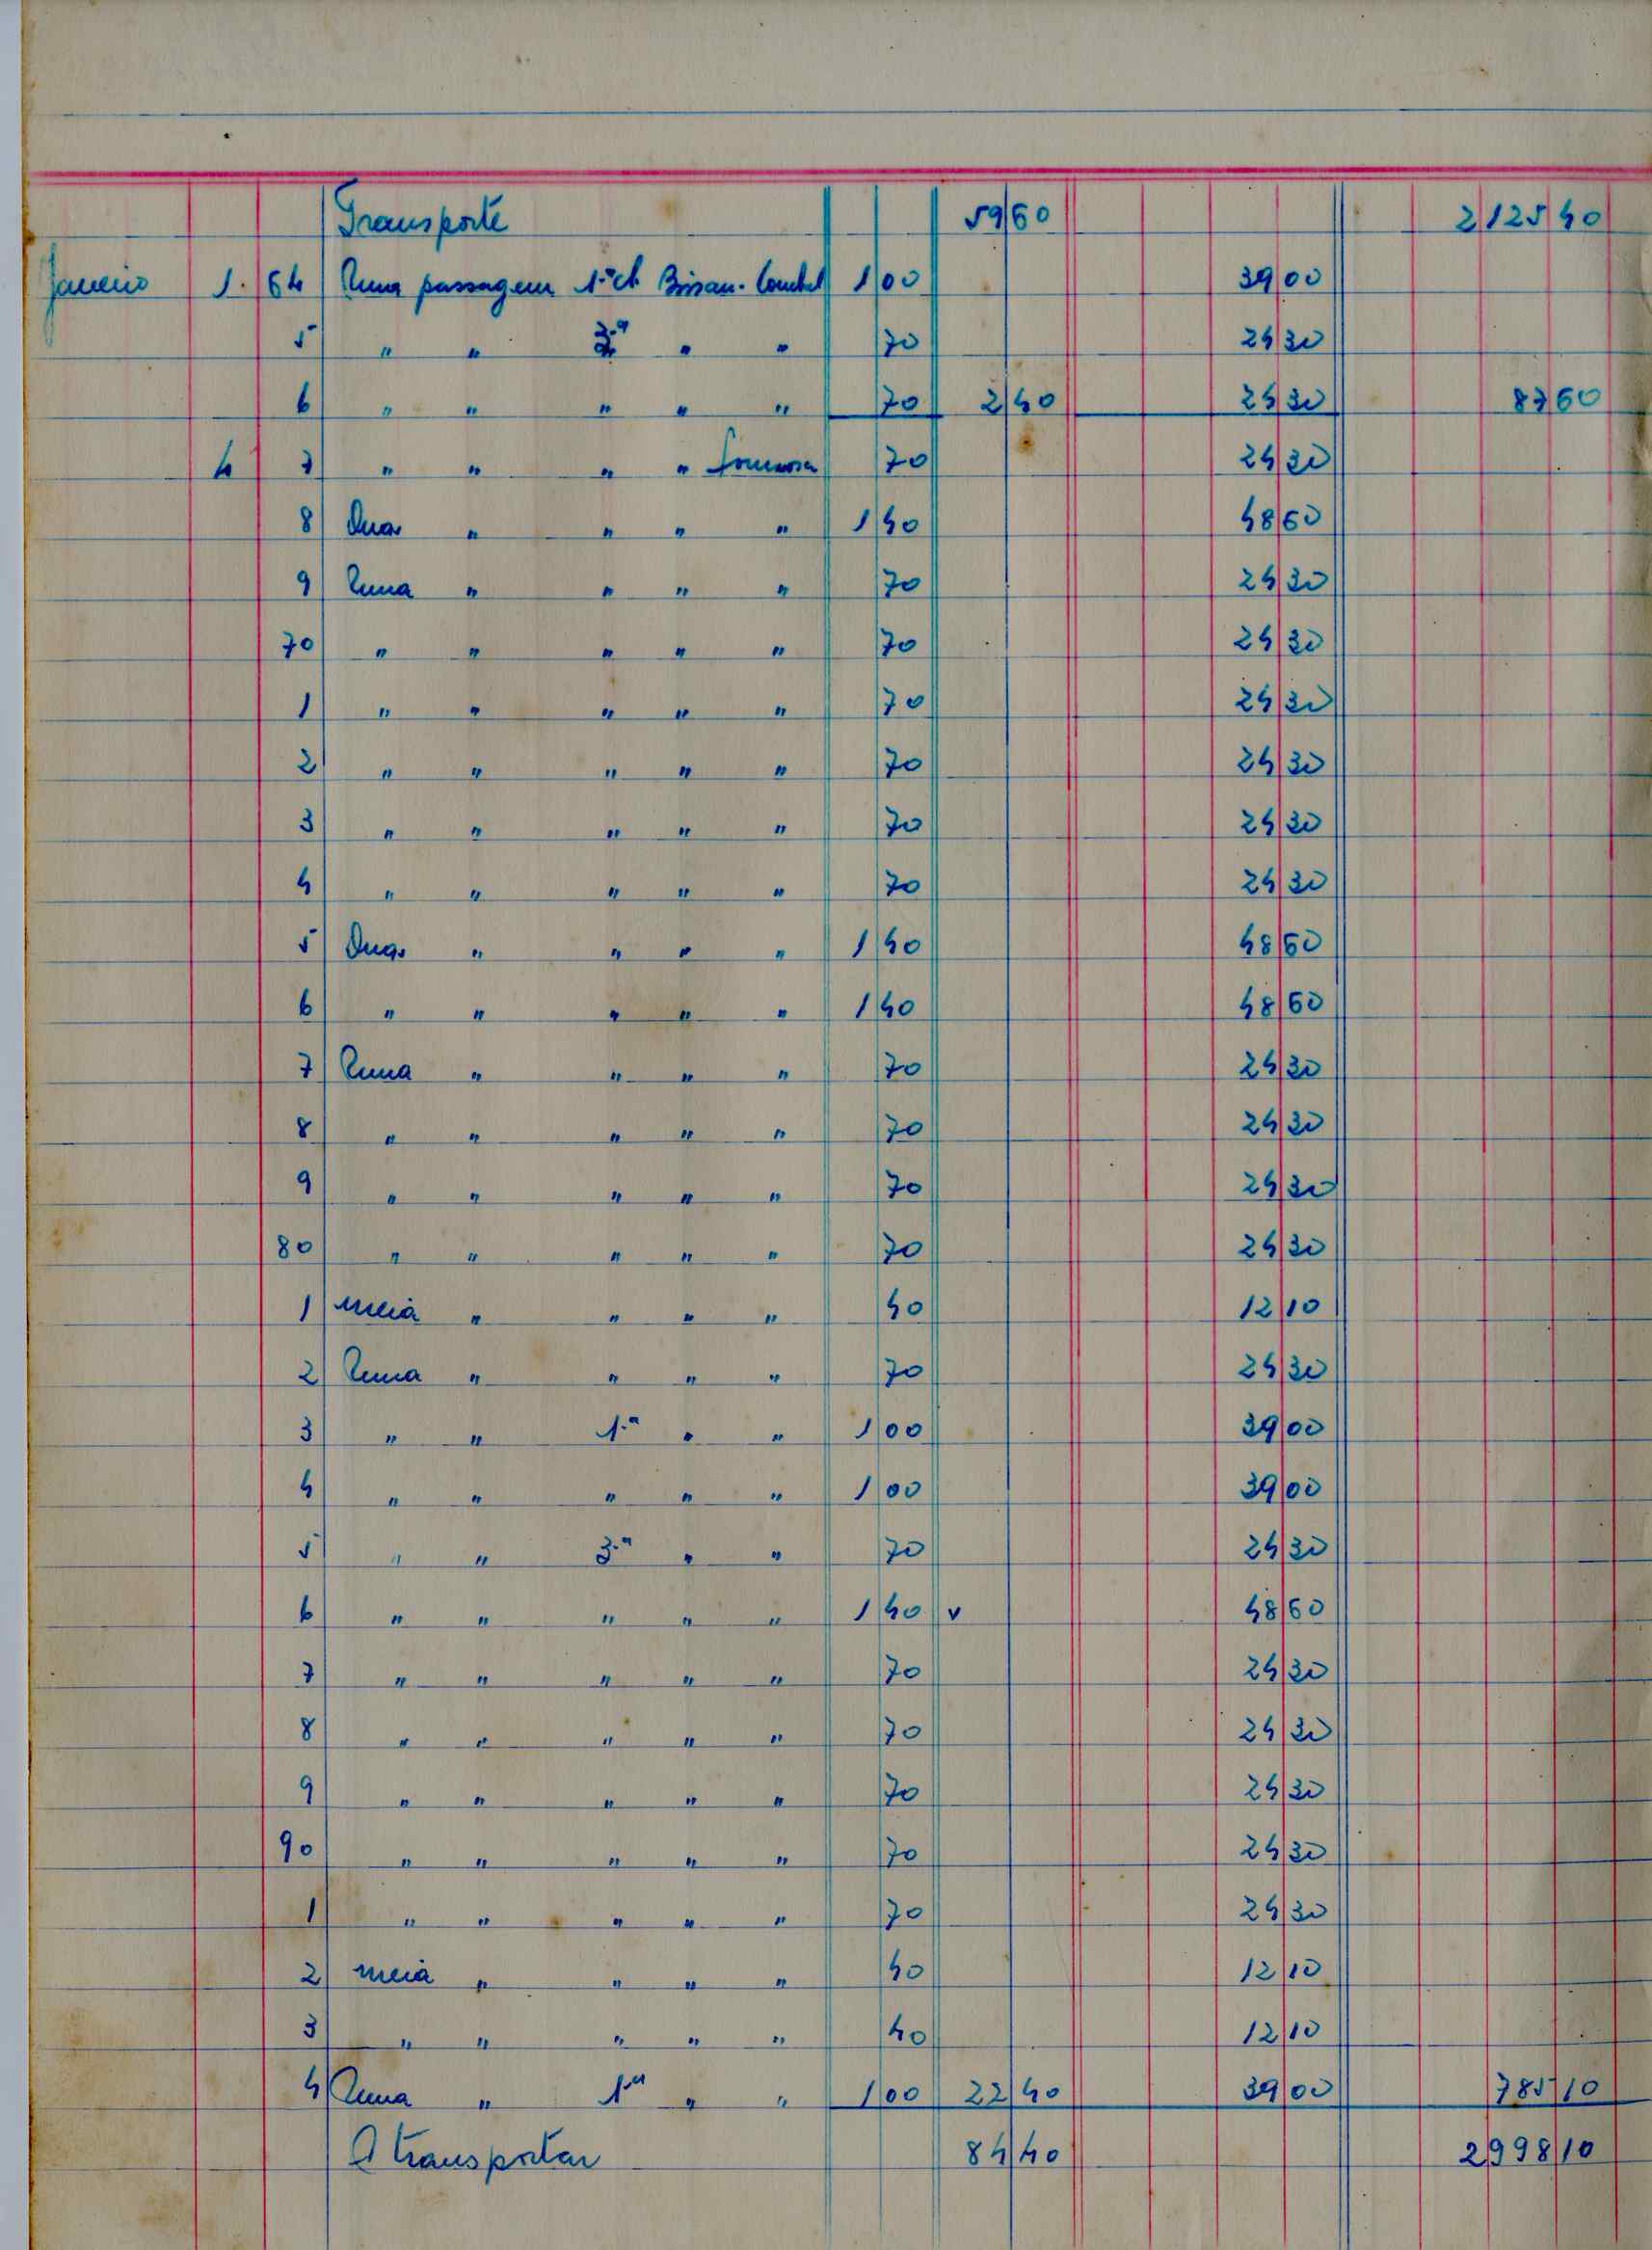 Transporte 59 60 2 125 40
Janeiro 1. 64 Uma passagem 1.ª cl. Bissau - 1 00 39 00
5 " " 3.ª " " 70 24 30
6 " " " " " 70 2 40 24 30 87 60
4 7 " " " " Formosa 70 24 30
8 Duas " " " " 1 40 48 60
9 Uma " " " " 70 24 30
70 " " " " " 70 24 30
1 " " " " " 70 24 30
2 " " " " " 70 24 30
3 " " " " " 70 24 30
4 " " " " " 70 24 30
5 Duas " " " " 1 40 48 60
6 " " " " " 1 40 48 60
7 Uma " " " " 70 24 30
8 " " " " " 70 24 30
9 " " " " " 70 24 30
80 " " " " " 70 24 30
1 Meia " " " " 40 12 10
2 Uma " " " " 70 24 30
3 " " 1.ª " " 1 00 39 00
4 " " " " " 1 00 39 00
5 " " 3.ª " " 70 24 30
6 " " " " " 1 40 v 48 60
7 " " " " " 70 24 30
8 " " " " " 70 24 30
9 " " " " " 70 24 30
90 " " " " " 70 24 30
1 " " " " " 70 24 30
2 Meia " " " " 40 12 10
3 " " " " " 40 12 10
4 Uma " 1.ª " " 1 00 22 40 39 00 785 10
A transportar 84 40 2 998 10